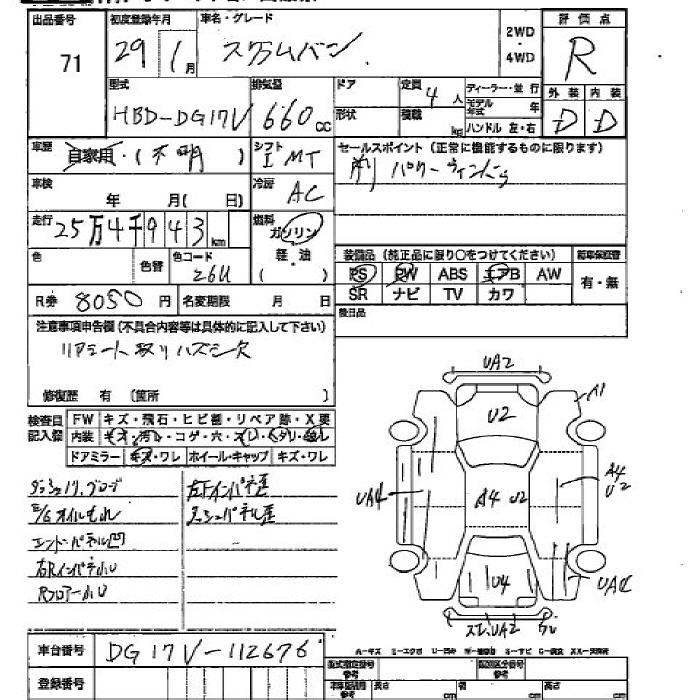 出品番号 初度登録年月 車名・グレード 評価点
71 29 1月 スクラムバン 2WD・4WD R
型式 排気量 ドア 定員 ディーラー・並行 外装 内装
HBD-DG17V 660cc 4人 モデル年式 年 D D
形状 積載 kg ハンドル 左・右
車歴 自家用・(不明) シフト I MT セールスポイント(正常に機能するものに限ります)
パワーウィンドウ
車検 年 月(日) 冷房 AC
走行 25万4千943km 燃料 ガソリン
軽・油
( )
色 色替 色コード 26U
装備品(純正品に限り○をつけてください)
PS PW ABS エアB AW 有・無
SR ナビ TV カワ
R券 8050円 名変期限 月 日
後日品
注意事項申告欄(不具合内容等は具体的に記入して下さい)
リアシート取りハズシ欠
修復歴 有(箇所 )
検査員記入欄 FW キズ・飛石・ヒビ割・リペア跡・X要
内装 キオ・汚レ・コゲ・穴・スレ・
ドアミラー キズ・ワレ ホイール・キャップ キズ・ワレ
E/Gオイルもれ
エンドパネル凹
右Rインパネ小U
Rフロアー小U
UA2
U2 A1
UA4 A4 U2 A4
U2
U4 UAC
UA2
車台番号 DG17V-112676
登録番号
型式指定番号 類別区分番号
長さ cm